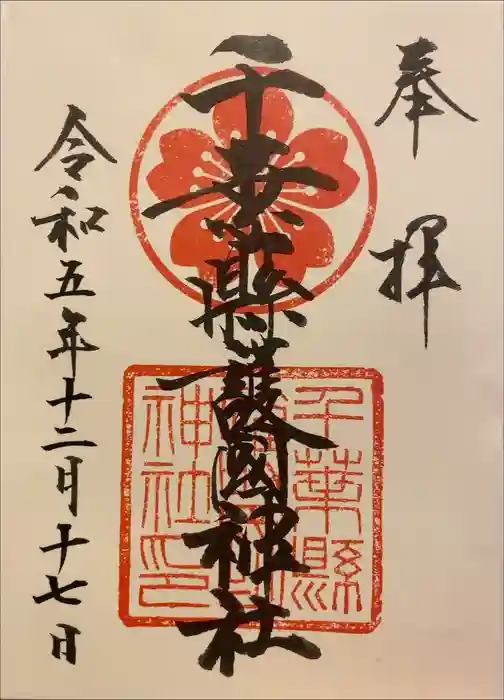 奉拝
千葉縣護國神社
千葉縣
護國
神社印
令和五年十二月十七日